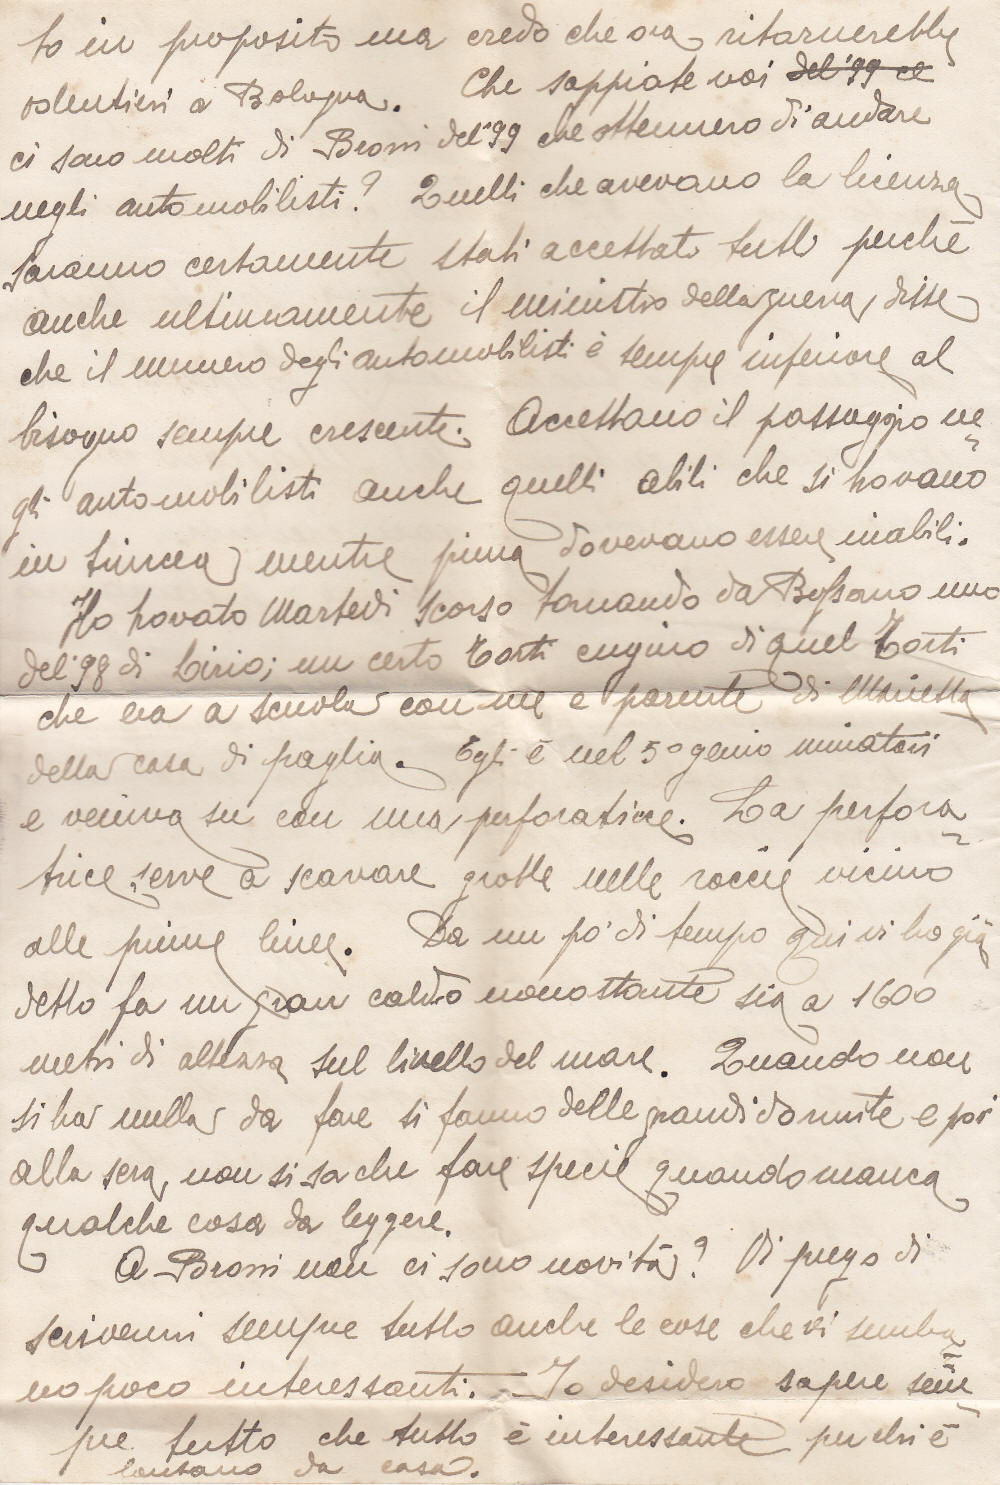 to in proposito ma credo che ora ritornerebbe
volentieri a Bologna. Che sappiate voi del '99 ce
ci sono molti di Broni del '99 che ottennero di andare
negli automobilisti? Quelli che avevano la licenza
saranno certamente stati accettati tutti perchè
anche ultimamente il ministro della guerra, disse
che il numero degli automobilisti è sempre inferiore al
bisogno sempre crescente. Accettano il passaggio ne
gli automobilisti anche quelli abili che si trovano
in trincea, mentre prima dovevano essere inabili.
Ho trovato Martedi scorso tornando da Bassano uno
del '98 di Cirio; un certo Torti cugino di quel Torti
che era a scuola con me e parente di Marietta
della casa di paglia. Egli è nel 5º genio minatori
e veniva su con una perforatrice. La perfora
trice serve a scavare grotte nelle roccie vicino
alle prime linee. Da un pò di tempo qui vi ho già
detto fa un gran caldo nonostante sia a 1600
metri di altezza sul livello del mare. Quando non
si ha nulla da fare si fanno delle grandi dormite e poi
alla sera, non si sa che fare specie quando manca
qualche cosa da leggere.
A Broni non ci sono novità? Vi prego di
scrivermi sempre tutto anche le cose che vi sembra
no poco interessanti. - Io desidero sapere sem
pre tutto che tutto è interessante per chi è
lontano da casa.